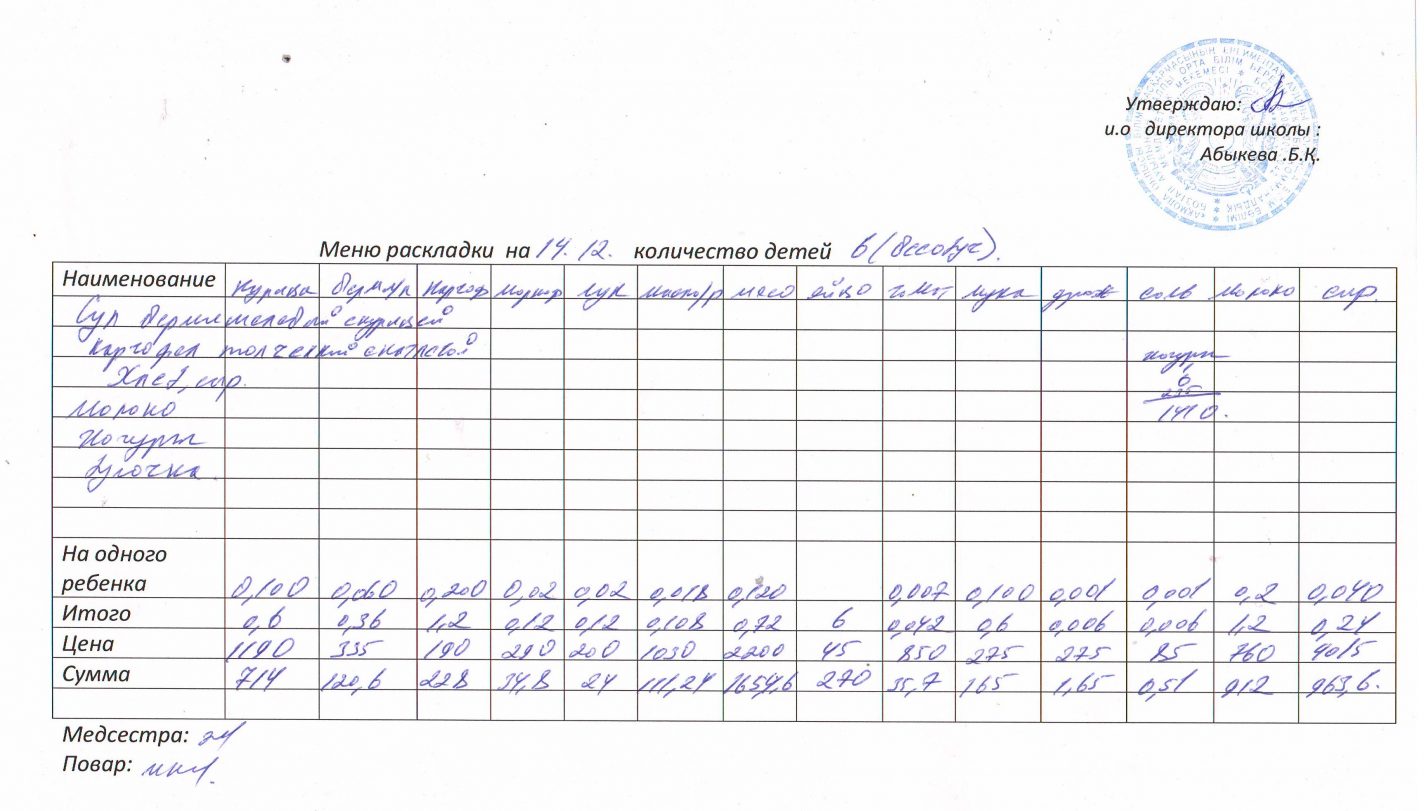 Утверждаю:
и.о директора школы :
Абыкева .Б.Қ.
Меню раскладки на 14.12. количество детей 6 (всеобуч).
Наименование курица верм картоф морков лук масло/р мясо яйцо томат мука дрож соль молоко сыр.
Суп вермишелевый с курицей
картофел толченный с котлетой
йогурт
Хлеб, сыр. 6
235
Молоко 1410.
Йогурт
Булочка.
На одного
ребенка 0,100 0,060 0,200 0,02 0,02 0,018 0,120 0,007 0,100 0,001 0,001 0,2 0,040
Итого 0,6 0,36 1,2 0,12 0,12 0,108 0,72 6 0,042 0,6 0,006 0,006 1,2 0,24
Цена 1190 335 190 290 200 1030 2200 45 850 275 275 85 760 4015
Сумма 714 120,6 228 34,8 24 111,24 270 35,7 165 1,65 0,51 912 963,6.
Медсестра:
Повар: